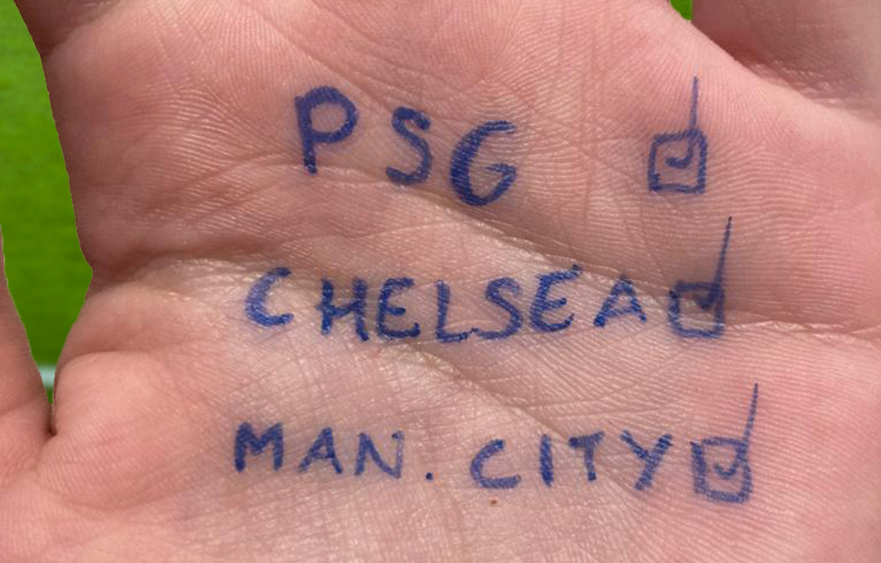 PSG ☑
CHELSEA ☑
MAN. CITY ☑